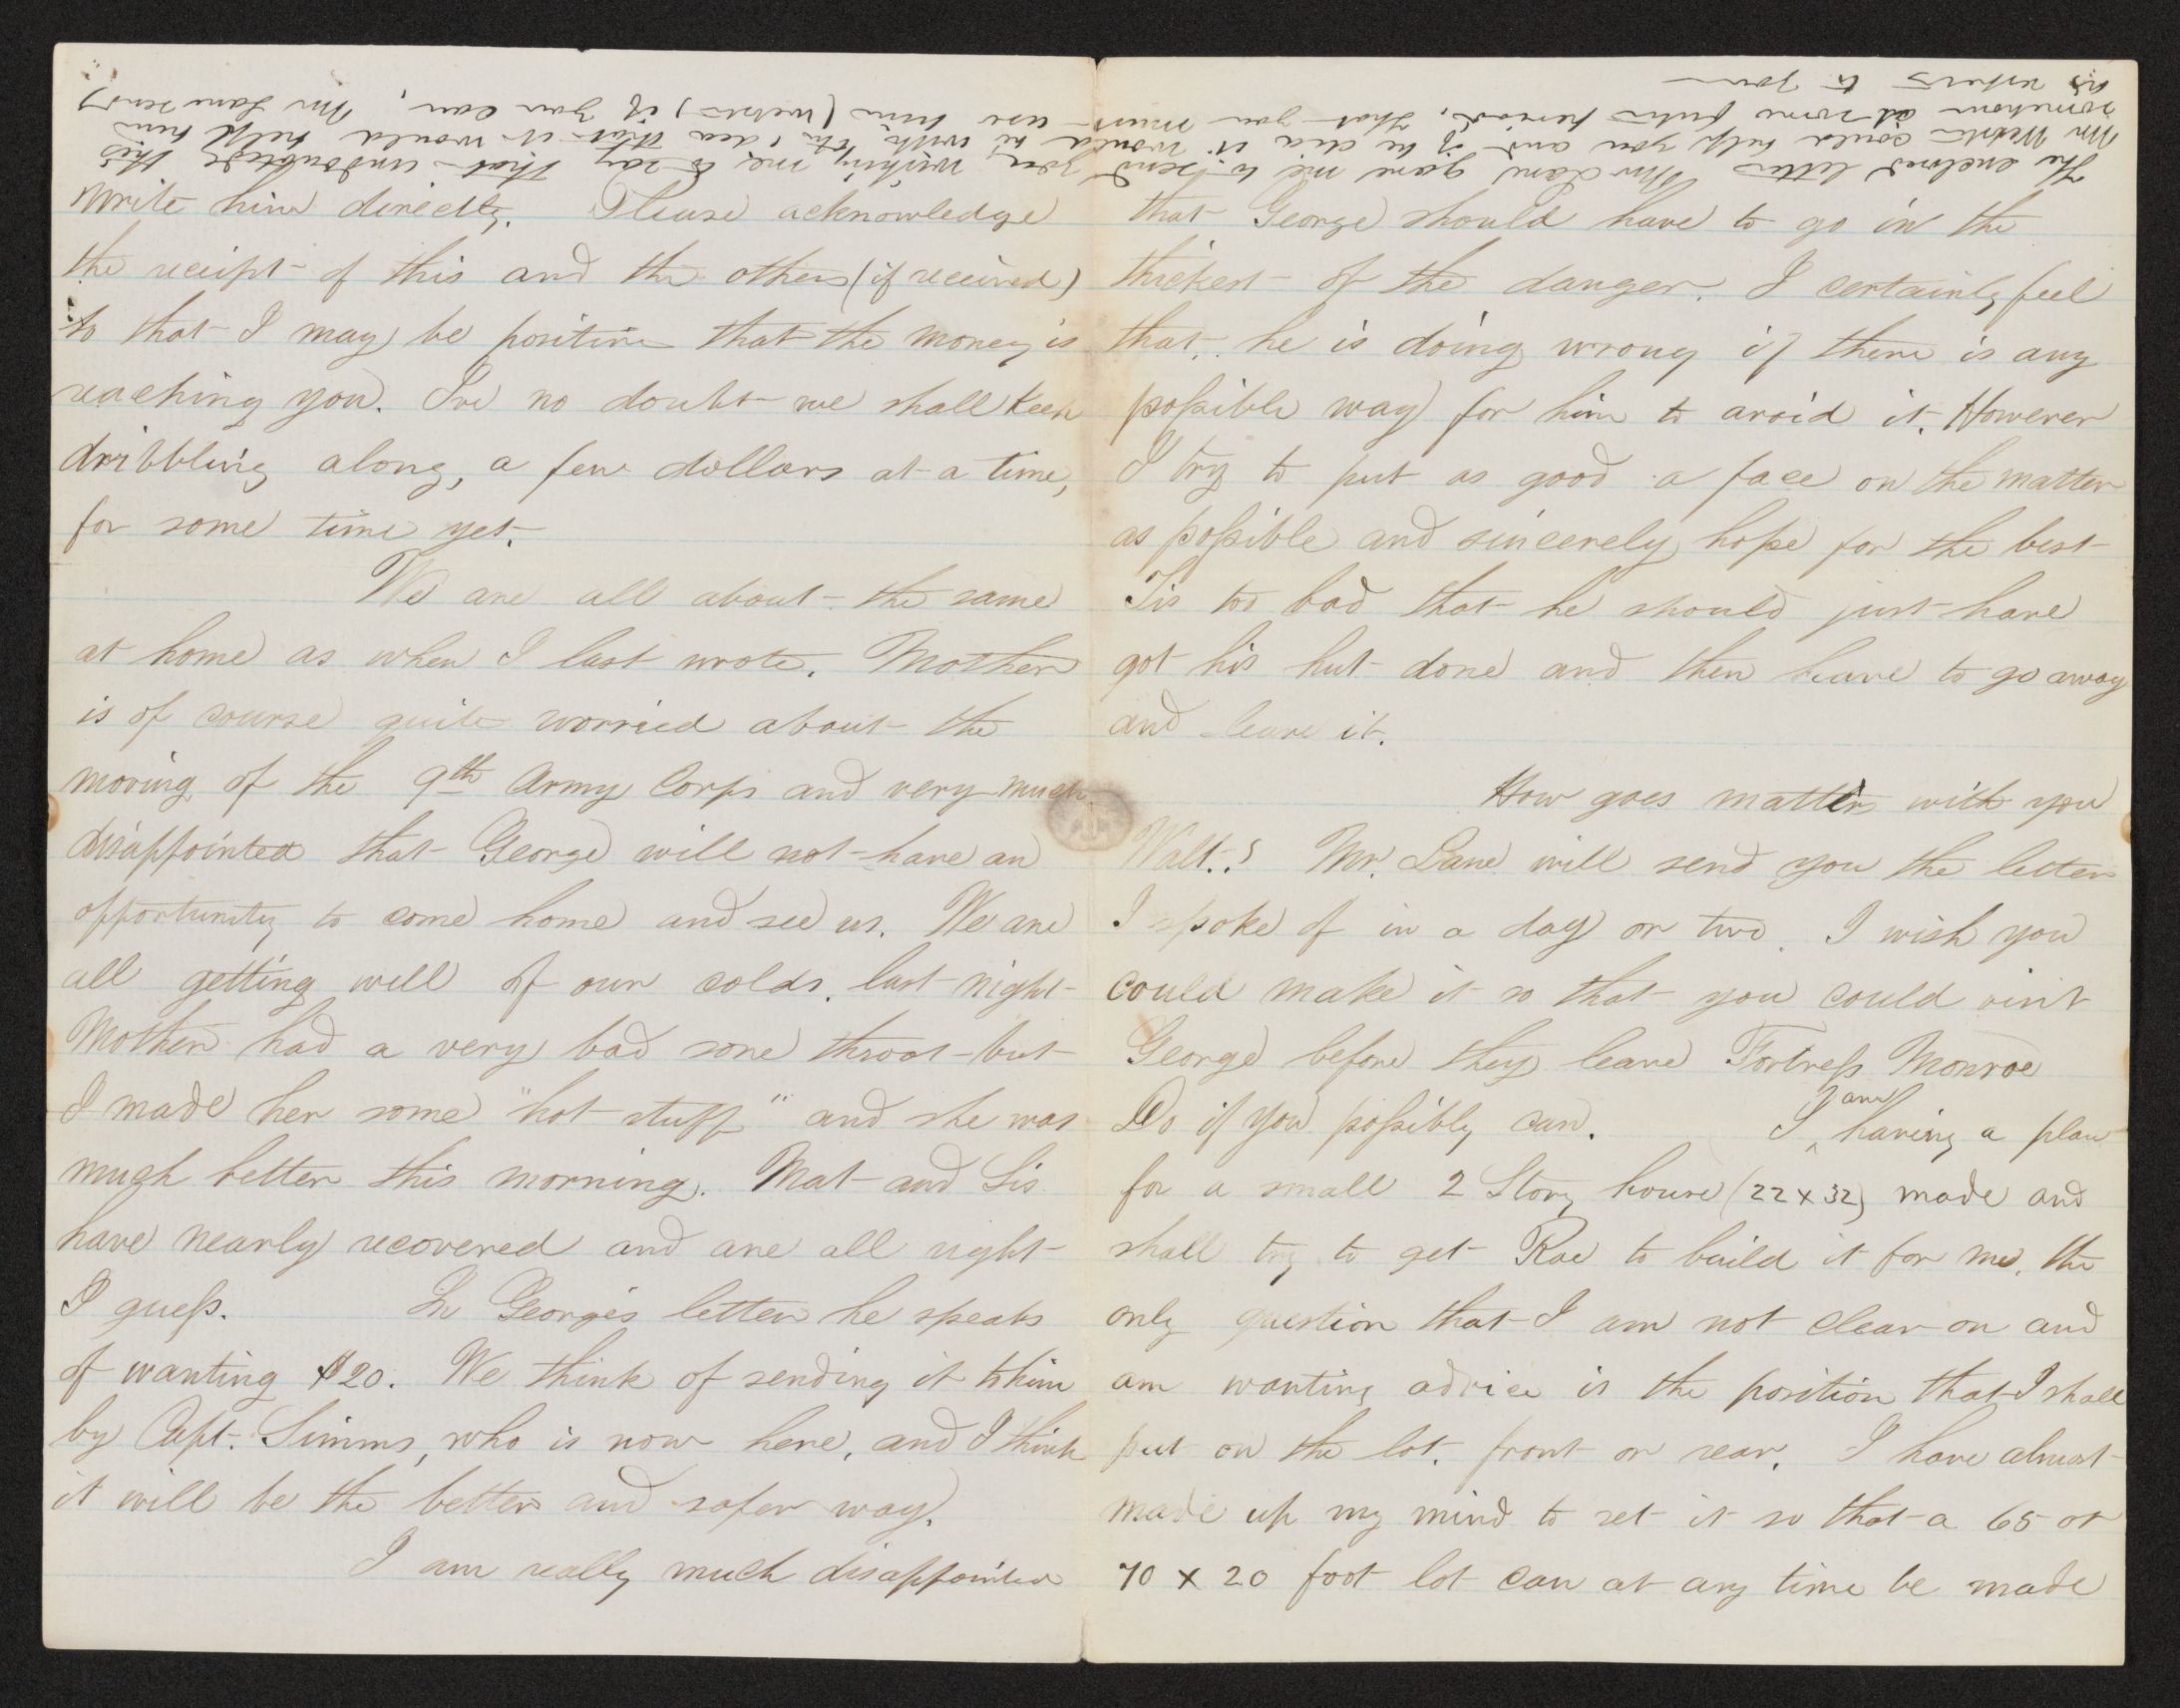 write him directly. Please acknowledge
the receipt of this and the others (if received)
so that I may be positive that the money is
reaching you. I've no doubt we shall keep
dribbling along, a few dollars at a time,
for some time yet.
We are all about the same
at home as when I last wrote. Mother
is of course quite worried about the
moving of the 9th Army Corps and very much
disappointed that George will not have an
opportunity to come home and see us. We are
all getting well of our colds. last night
Mother had a very bad sore throat but
I made her some "hot stuff" and she was
much better this morning. Mat and Sis
have nearly recovered and are all right
I guess. In George's letter he speaks
of wanting $20. We think of sending it to him
by Capt. Simms, who is now here, and I think
it will be the better and safer way.
I am really much disappointed
that George should have to go in the
thickest of the danger. I certainly feel
that he is doing wrong if there is any
possible way for him to avoid it. However
I try to put as good a face on the matter
as possible and sincerely hope for the best
Tis too bad that he should just have
got his hut done and then have to go away
and leave it.
How goes matters with you
Walt.? Mr. Lane will send you the letter
I spoke of in a day or two. I wish you
could make it so that you could visit
George before they leave Fortress Monroe
Do if you possibly can. I am having a plan
for a small 2 Story house (22 x 32) made and
shall try to get Roe to build it for me. the
only question that I am not clear on and
am wanting advice is the position that I shall
put on the lot. front or rear. I have almost
made up my mind to set it so that a 65 or
70 x 20 foot lot can at any time be made
The enclosed letter Mr Lane gave me to send you wishing me to say that undoubtedly this
Mr Webster could help you and if he did it would be with the idea that it would help him
somehow at some future period. that you must use him (Webs) if you can. Mr Lane sends
his respects to you